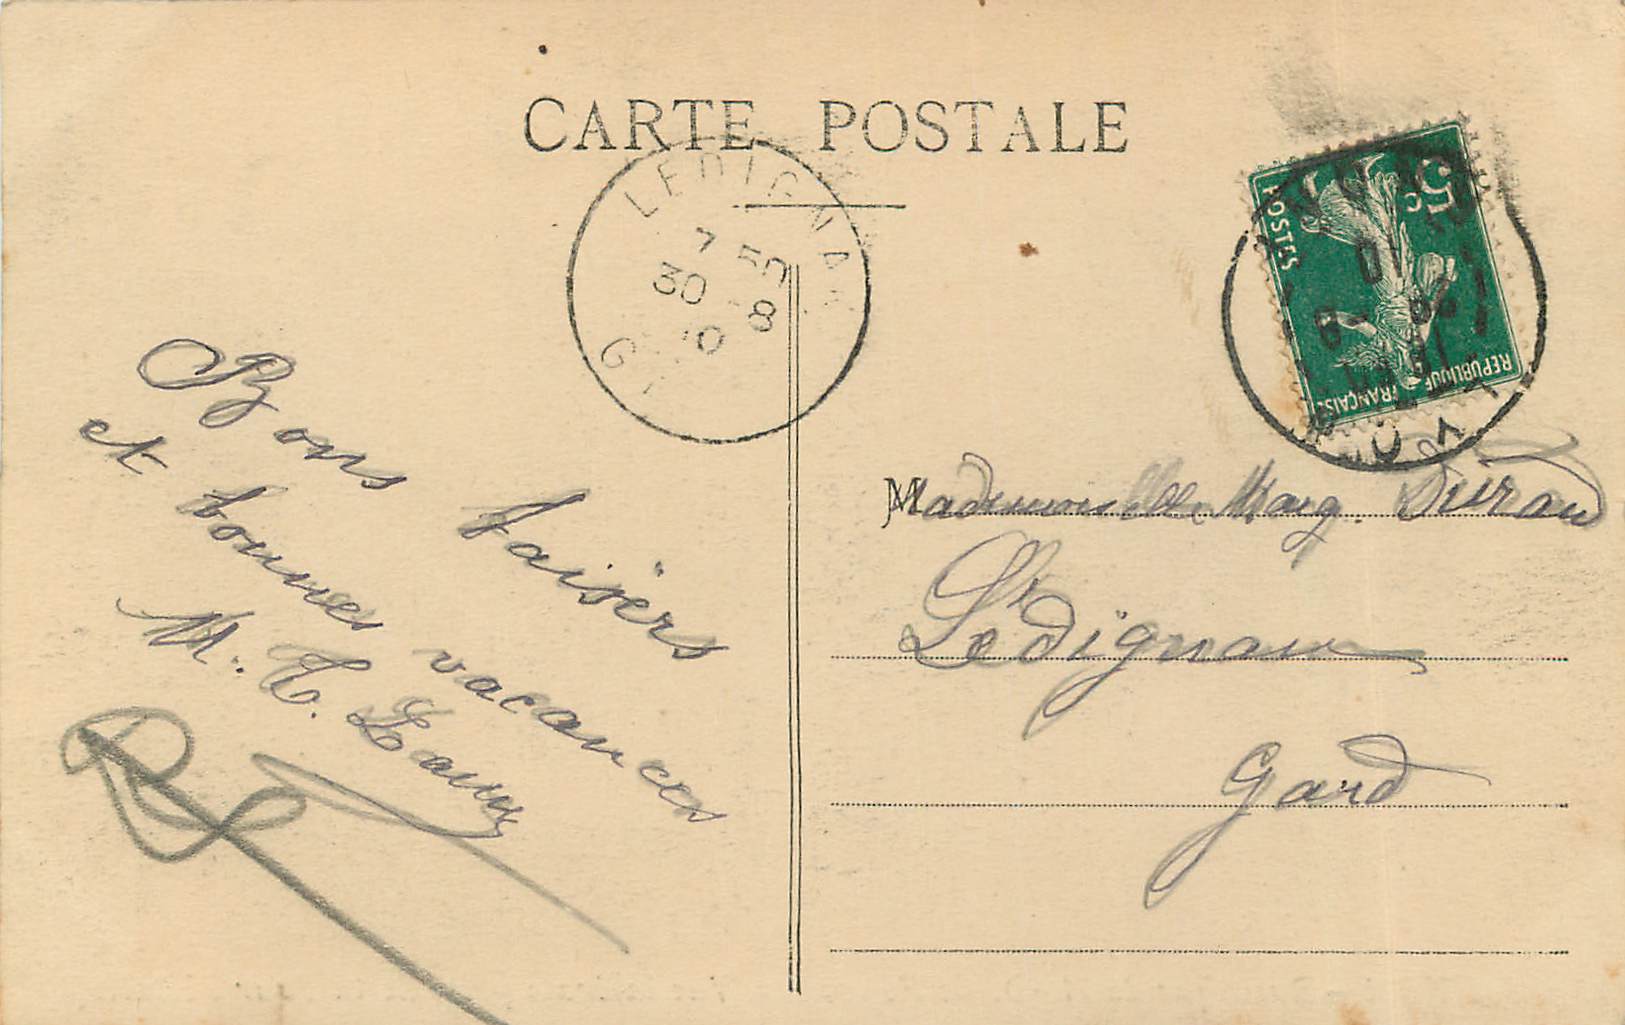 CARTE POSTALE
LEDIGNA
7 50
30 -8
10
G
5c
POSTES
REPUBLIQUE
FRANÇAISE
Bons baisers
et bonnes vacances
M. T.
Mademoiselle Marg. Durand
Lédignan
Gard